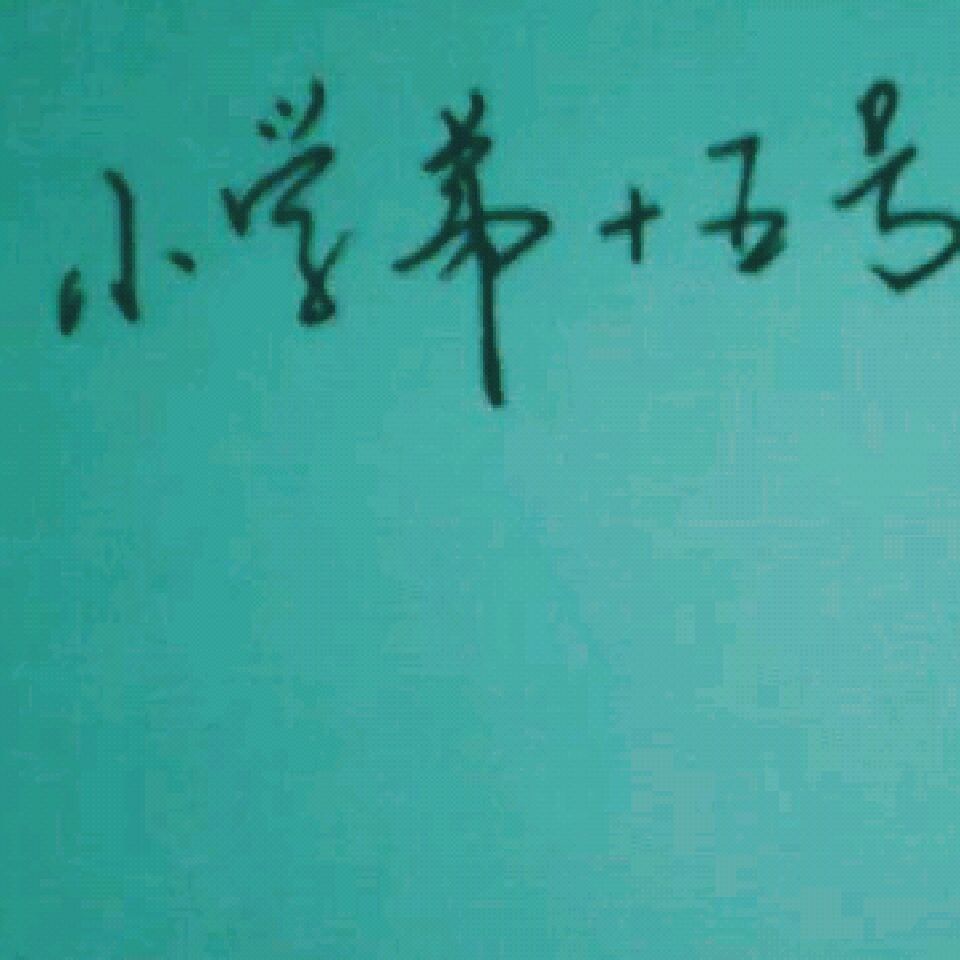 小学第十五号